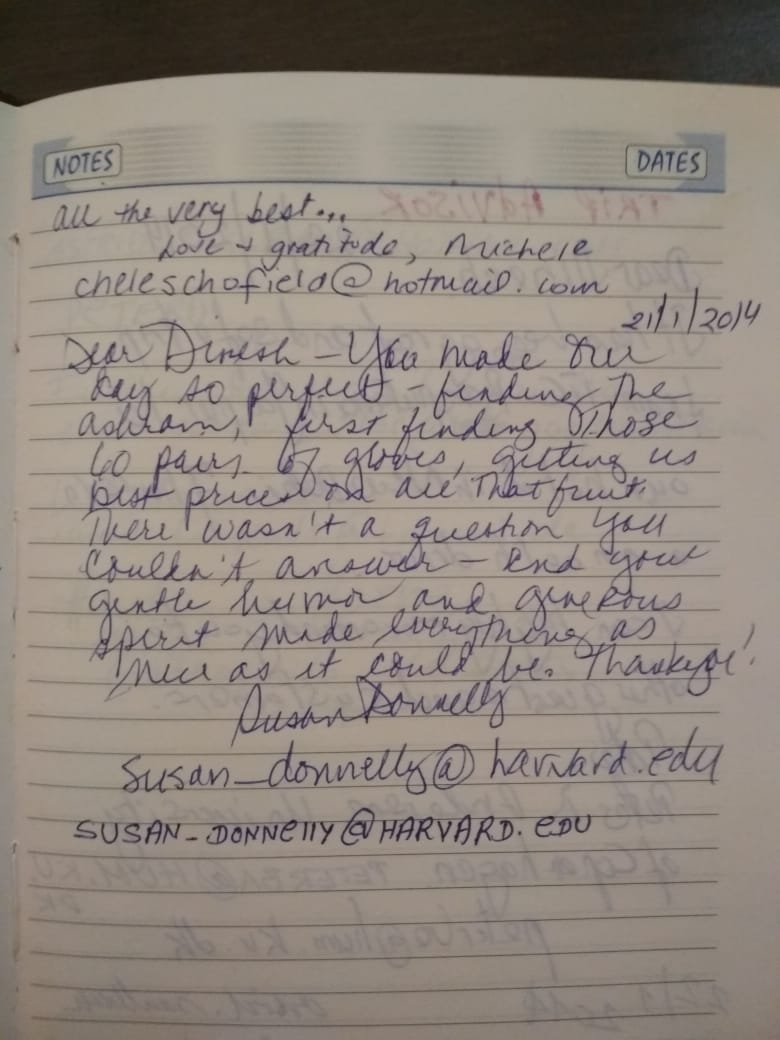 NOTES DATES
all the very best...
Love + gratitude, Michele
cheleschofield@hotmail.com
21/1/2014
Dear Dinesh - You made our
day so perfect - finding the
ashram, first finding those
60 pairs of gloves, getting us
best prices on all that fruit.
There wasn't a question you
couldn't answer - and your
gentle humor and generous
spirit made everything as
nice as it could be. Thank you!
Susan Donnelly
Susan_donnelly@harvard.edu
SUSAN_DONNEllY@HARVARD.EDU
TRIP ADVISOR